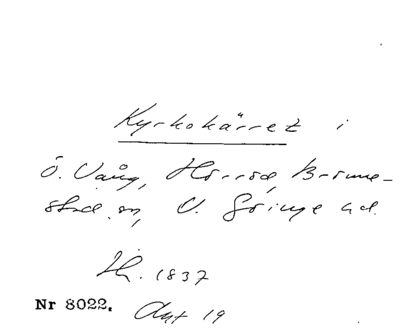 Kyrkokärret i
Ö. Vång, Hörröd, Brönne-
stad sn, V. Göinge hd.
Jh. 1837
Nr 8022. Akt 19